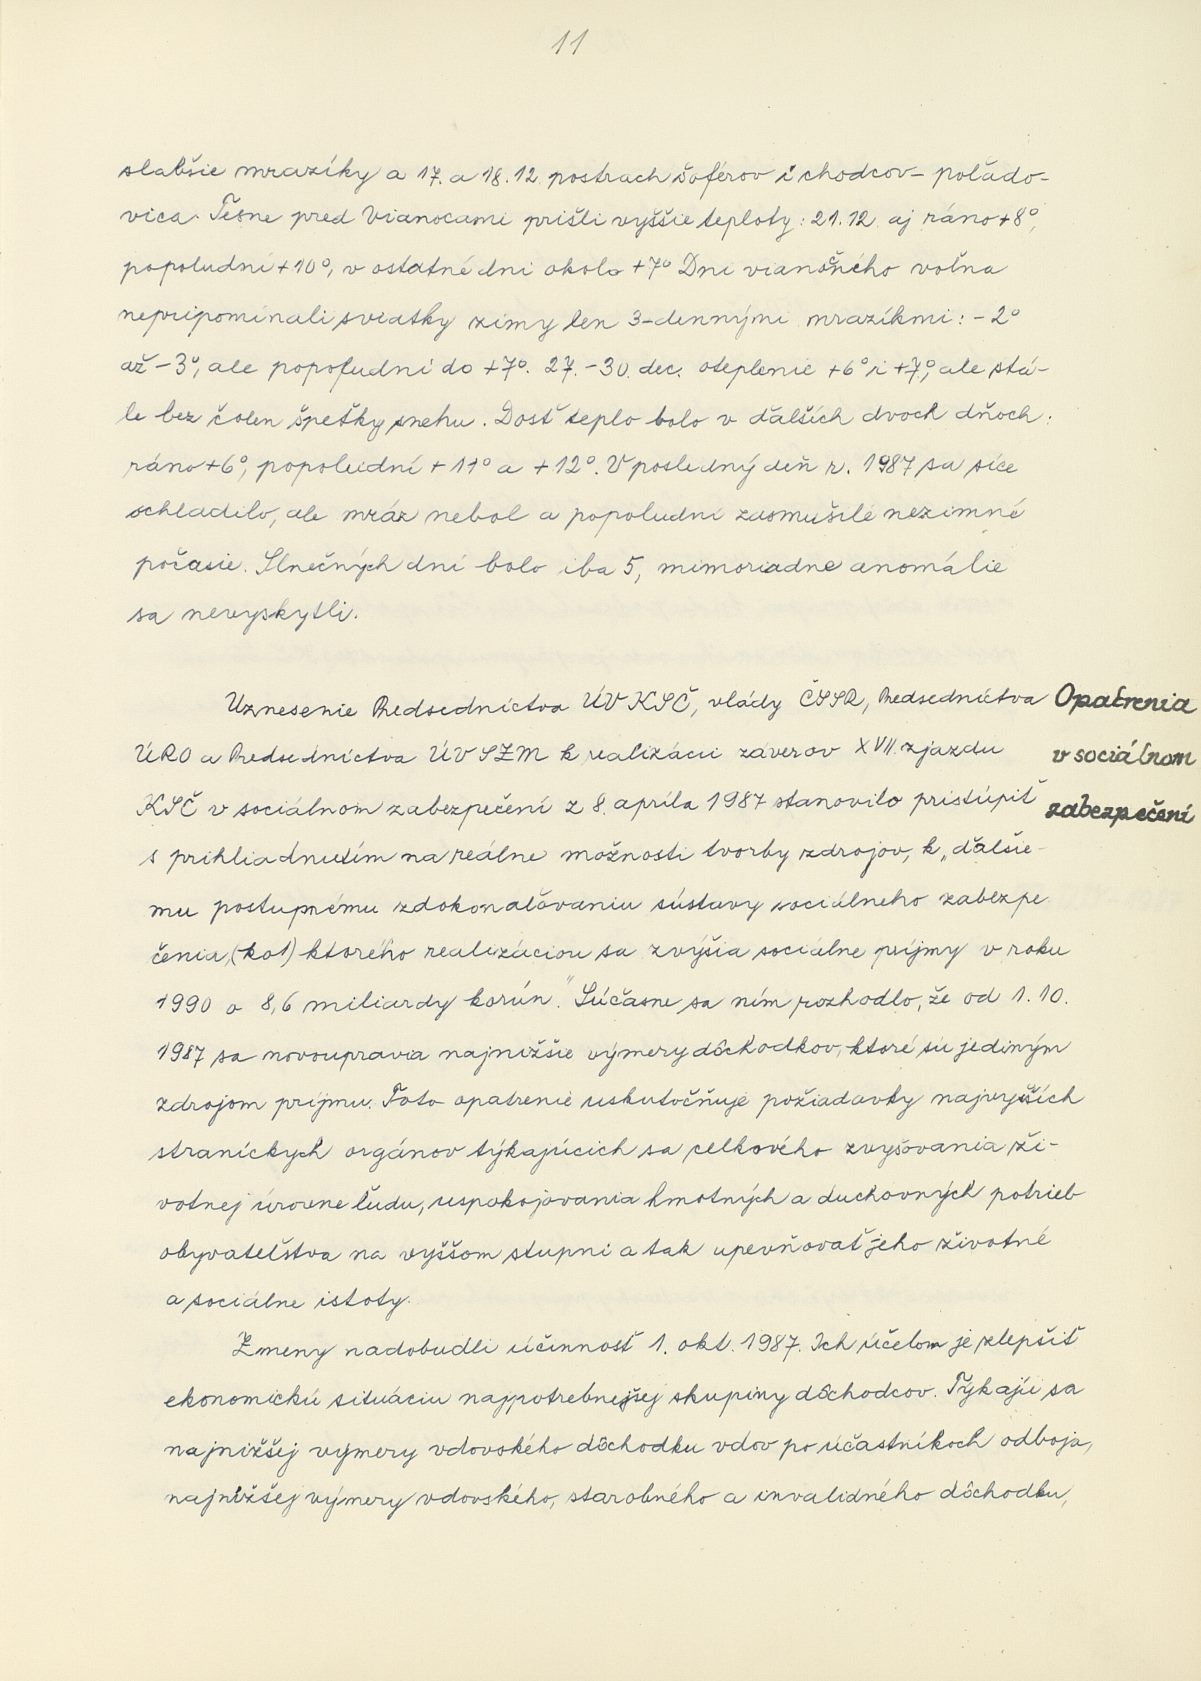 11
slabšie mrazíky a 17. a 18.12. postrach šoférov i chodcov – poľado-
vica. Tesne pred Vianocami prišli vyššie teploty: 21.12. aj ráno +8°,
popoludní +10°, v ostatné dni okolo +7° Dni vianočného voľna
nepripomínali sviatky zimy len 3-dennými mrazíkmi: – 2°
až – 3°, ale popoľudní do +7°. 27. – 30. dec. oteplenie +6° i +7°, ale stá-
le bez čo len špeťky snehu. Dosť teplo bolo v ďalších dvoch dňoch:
ráno +6°, popoludní + 11° a + 12°. V posledný deň r. 1987 sa síce
schladilo, ale mráz nebol a popoludní zasmušilé nezimné
počasie. Slnečných dní bolo iba 5, mimoriadne anomálie
sa nevyskytli.
Uznesenie Predsedníctva ÚV KSČ, vlády ČSSR, Predsedníctva
Opatrenia
ÚRO a Predsedníctva ÚV SZM k realizácii záverov XVII. zjazdu
v sociálnom
KSČ v sociálnom zabezpečení z 8. apríla 1987 stanovilo pristúpiť
zabezpečení
s prihliadnutím na reálne možnosti tvorby zdrojov, k „ďalšie-
mu postupnému zdokonaľovaniu sústavy sociálneho zabezpe
čenia, (ko1) ktorého realizáciou sa zvýšia sociálne príjmy v roku
1990 o 8,6 miliardy korún." Súčasne sa ním rozhodlo, že od 1. 10.
1987 sa novoupravia najnižšie výmery dôchodkov, ktoré sú jediným
zdrojom príjmu. Toto opatrenie uskutočňuje požiadavky najvyšších
straníckych orgánov týkajúcich sa celkového zvyšovania ži-
votnej úrovne ľudu, uspokojovania hmotných a duchovných potrieb
obyvateľstva na vyššom stupni a tak upevňovať jeho životné
a sociálne istoty.
Zmeny nadobudli účinnosť 1. okt. 1987. Ich účelom je zlepšiť
ekonomickú situáciu najpotrebnejšej skupiny dôchodcov. Týkajú sa
najnižšej výmery vdovského dôchodku vdov po účastníkoch odboja,
najnižšej výmery vdovského, starobného a invalidného dôchodku,